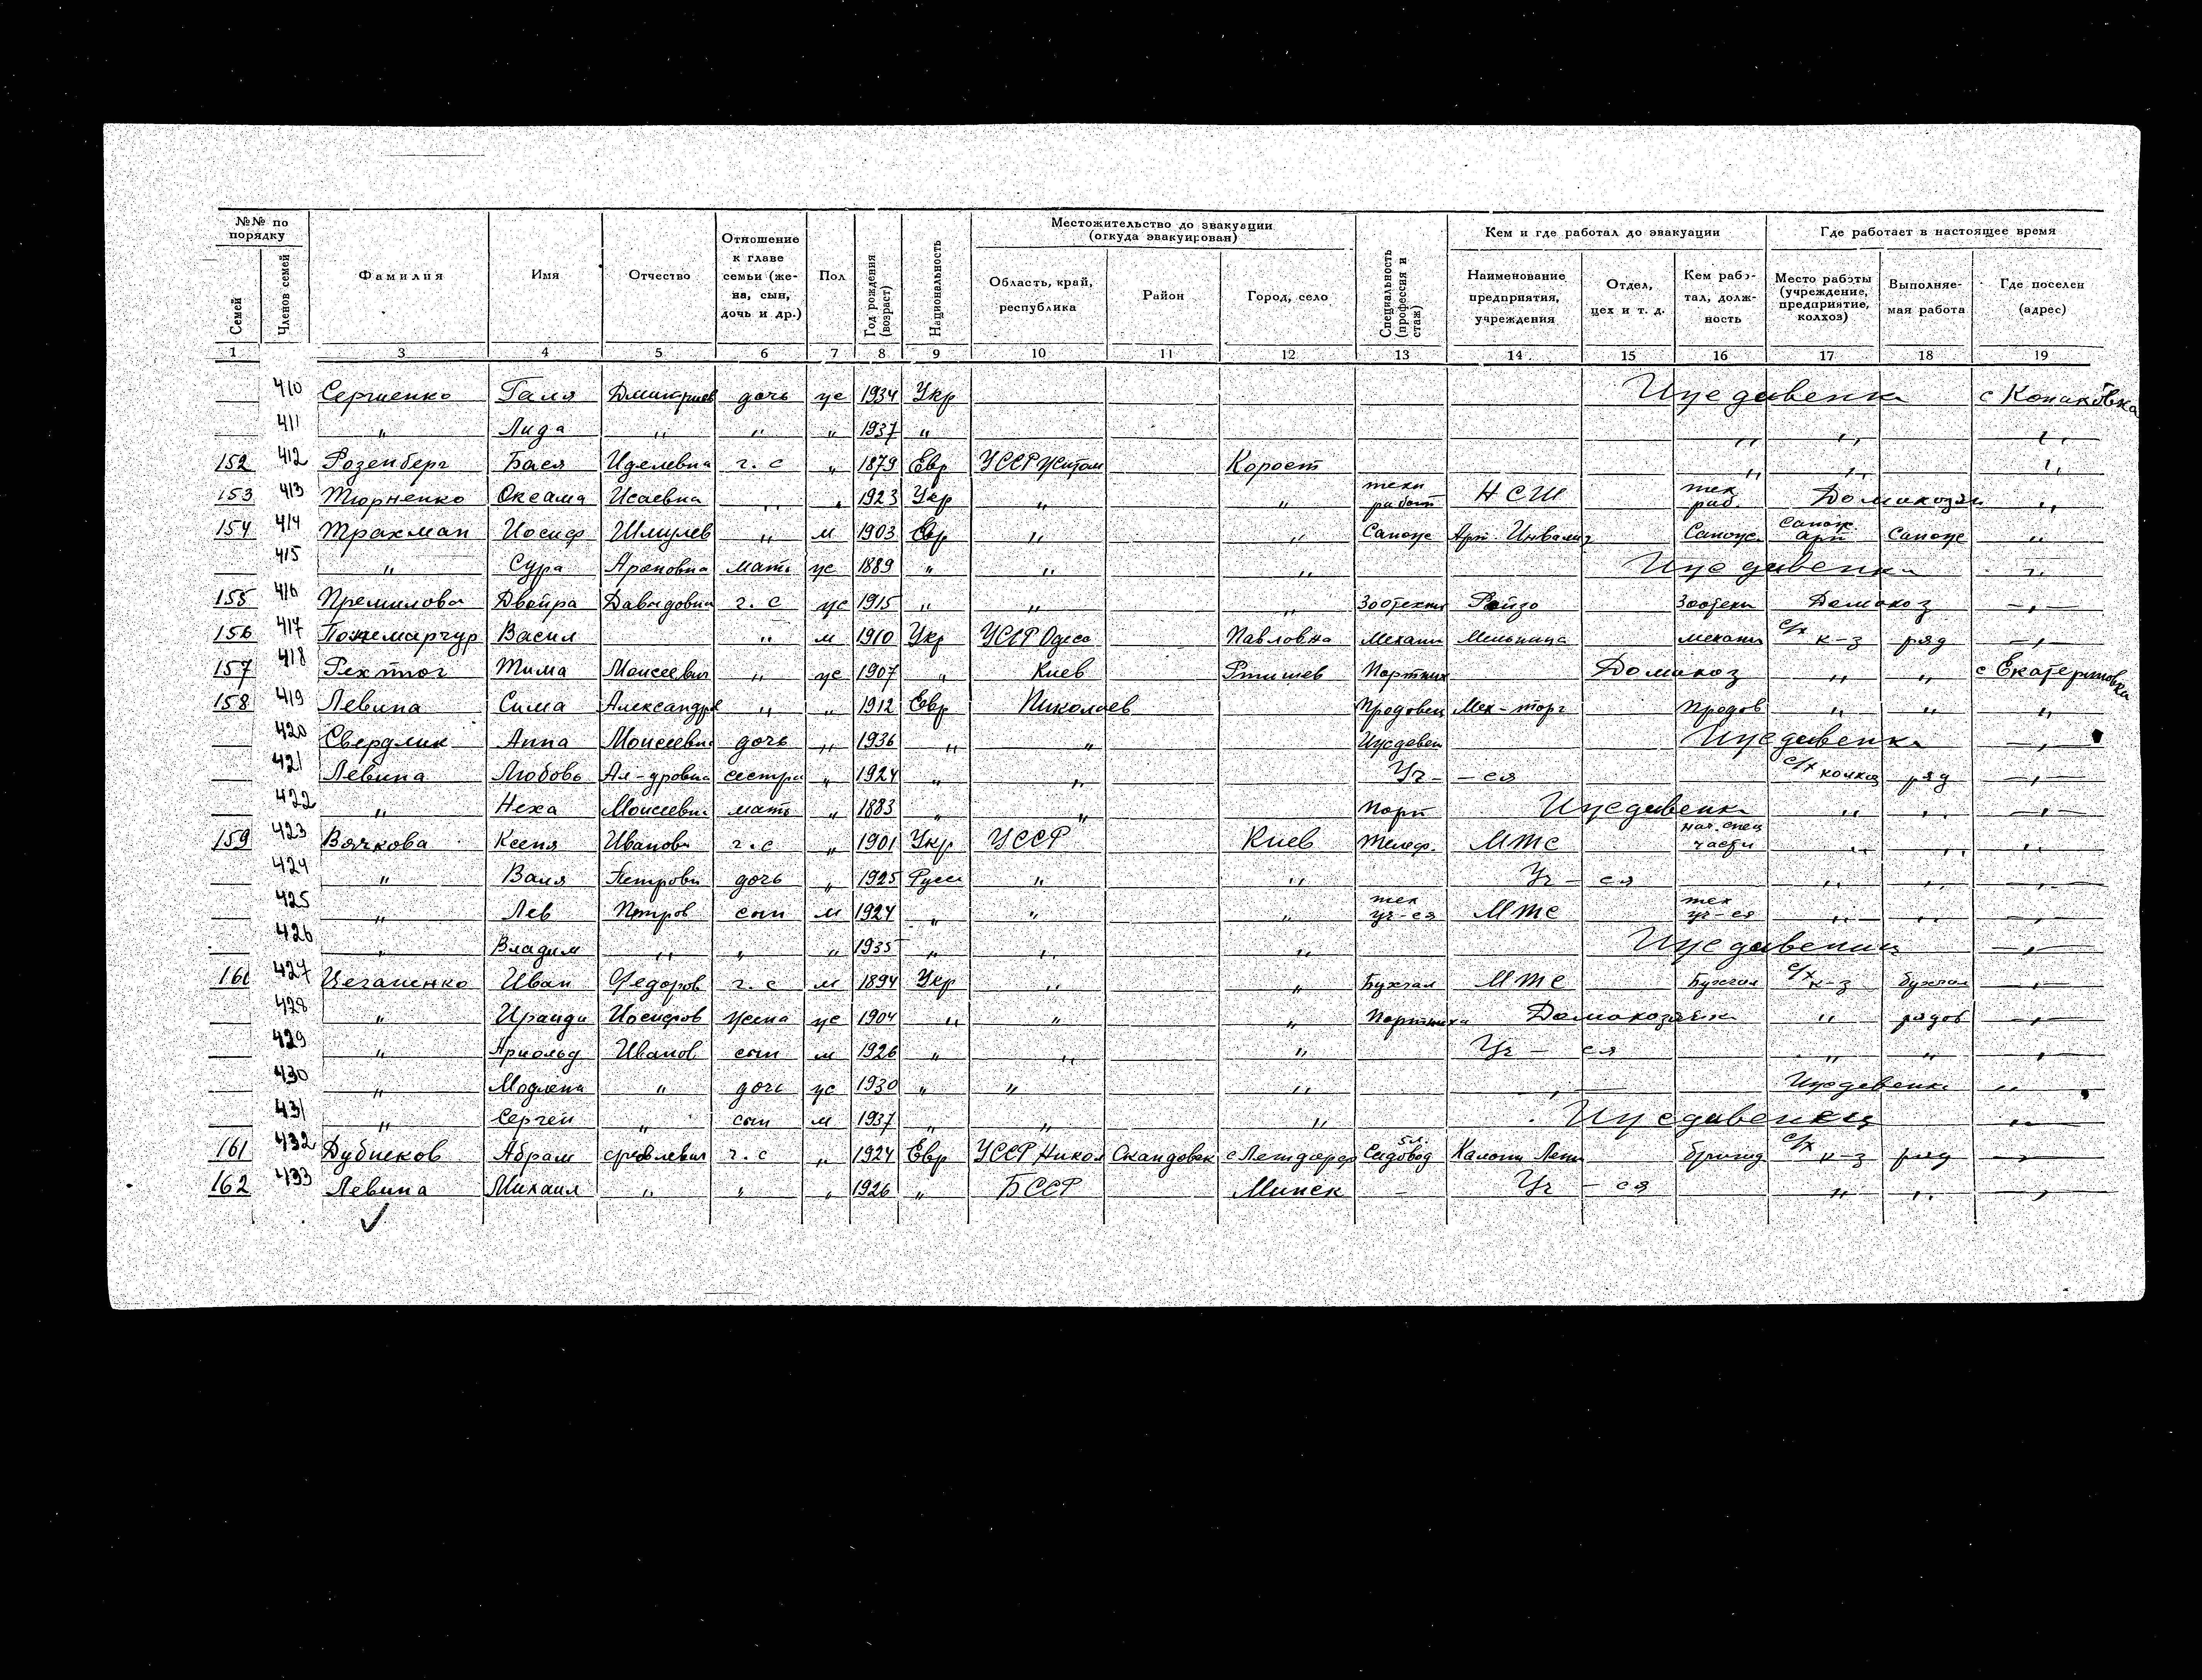 №№ по порядку
Семей | Членов семей | Фамилия | Имя | Отчество | Отношение к главе семьи (жена, сын, дочь и др.) | Пол | Год рождения (возраст) | Национальность | Местожительство до эвакуации (откуда эвакуирован) | Специальность (профессия и стаж) | Кем и где работал до эвакуации | Где работает в настоящее время
Область, край, республика | Район | Город, село | Наименование предприятия, учреждения | Отдел, цех и т. д. | Кем работал, должность | Место работы (учреждение, предприятие, колхоз) | Выполняемая работа | Где поселен (адрес)
1 3 4 5 6 7 8 9 10 11 12 13 14 15 16 17 18 19
410 Сергиенко Галя Дмитриев дочь ж 1934 Укр Иждивенка
411 " Лида " " " 1937 " " " "
152 412 Розенберг Бася Иделевна г. с " 1879 Евр УССР Житом Корост " " "
153 413 Тюрненко Исаевна " " 1923 Укр " " техн работ НСШ тех раб. Домохозя "
154 414 Трахман Иосиф Шмулев " м 1903 Евр " " Сапож Арт. Инвалид Сапож сапож. арт Сапож "
415 " Сура Ароновна мать ж 1889 " " " Иждивенка "
155 416 Двойра Давидовна г. с ж 1915 " " " Зоотехни Райзо Зоотехн Домохоз — " —
156 417 Васил " м 1910 Укр УССР Одесс Павловка Механи Мельница механи с/х к-з ряд — " —
157 418 Тима Моисеевич " ж 1907 " Киев Ртищев Портних Домохоз " " с Екатериновка
158 419 Левина Сима Александров " " 1912 Евр Николаев Продовец Мех-торг Продов " " "
420 Свердлик Анна Моисеевна дочь " 1936 " " Иждевен Иждивенка — " —
421 Левина Любовь Ал-дровна сестра " 1924 " " Уч- -ся с/х колхоз ряд — " —
422 " Неха Моисеевна мать " 1883 " " Порт Иждивенка " " — " —
159 423 Вячкова Ксеня Иванов г. с " 1901 Укр УССР Киев Телеф. МТС нач. спец части " " "
424 " Валя Петровн дочь " 1925 Русс " " Уч — ся " " — " —
425 " Лев Петров сын м 1924 " " " тех уч-ся МТС тех уч-ся " " — " —
426 " Владим " " " 1935 " " " Иждивенец — " —
160 427 Цегапенко Иван Федоров г. с м 1894 Укр " " Бухгал МТС Бухгал с/х к-з бухгал — " —
428 " Ираида Иосифов жена ж 1904 " " " Портниха Домохозяйк " рядов — " —
429 " Арнольд Иванов сын м 1926 " " " Уч — ся " " "
430 " " дочь ж 1930 " " " " Иждевенк "
431 " Сергей " сын м 1937 " " " Иждивенец "
161 432 Абрам г. с " 1924 Евр УССР Никол Садовод бригад с/х к-з ряд — " —
162 433 Левина Михаил " " " 1926 " БССР Минск - Уч — ся " " — " —